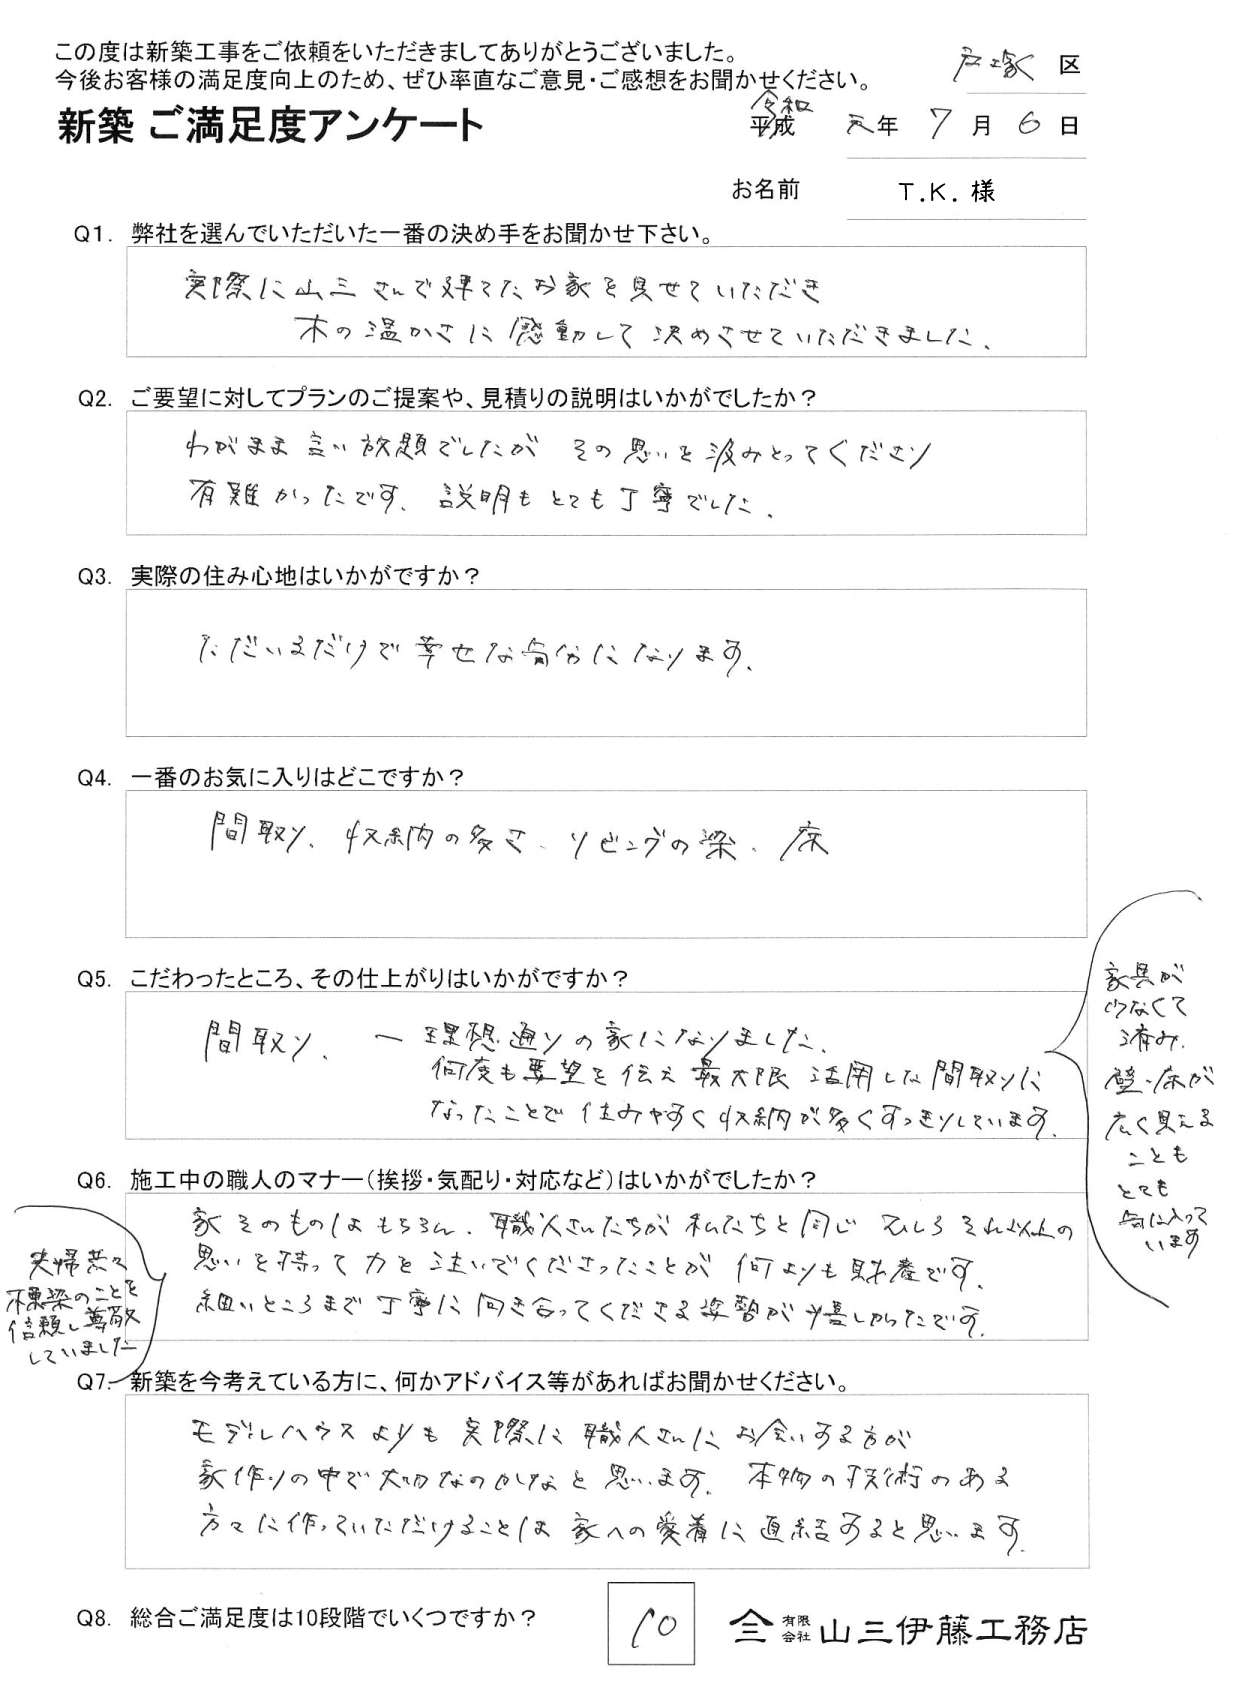 この度は新築工事をご依頼をいただきましてありがとうございました。
今後お客様の満足度向上のため、ぜひ率直なご意見・ご感想をお聞かせください。
戸塚 区
新築 ご満足度アンケート
令和
平成 元年 7月 6日
お名前 T.K. 様
Q1. 弊社を選んでいただいた一番の決め手をお聞かせ下さい。
実際に山三さんで建てたお家を見せていただき
木の温かさに感動して決めさせていただきました。
Q2. ご要望に対してプランのご提案や、見積りの説明はいかがでしたか？
わがまま言い放題でしたが その思いを汲みとってくださり
有難かったです。説明もとても丁寧でした。
Q3. 実際の住み心地はいかがですか？
ただいるだけで幸せな気分になります。
Q4. 一番のお気に入りはどこですか？
間取り、収納の多さ、リビングの梁、床
Q5. こだわったところ、その仕上がりはいかがですか？
間取り、 ー 理想通りの家になりました。
何度も要望を伝え最大限活用した間取りに
なったことで住みやすく収納が多くすっきりしています。
家具が
少なくて
済み、
壁・床が
広く見える
ことも
とても
気に入って
います
Q6. 施工中の職人のマナー（挨拶・気配り・対応など）はいかがでしたか？
家そのものはもちろん、職人さんたちが私たちと同じ むしろそれ以上の
思いを持って力を注いでくださったことが何よりも財産です。
細いところまで丁寧に向き合ってくださる姿勢が嬉しかったです。
夫婦共々
棟梁のことを
信頼し尊敬
していました
Q7. 新築を今考えている方に、何かアドバイス等があればお聞かせください。
モデルハウスよりも実際に職人さんにお会いする方が
家作りの中で大切なのかなと思います。本物の技術のある
方々に作っていただけることは家への愛着に直結すると思います。
Q8. 総合ご満足度は10段階でいくつですか？
10
有限会社 山三伊藤工務店